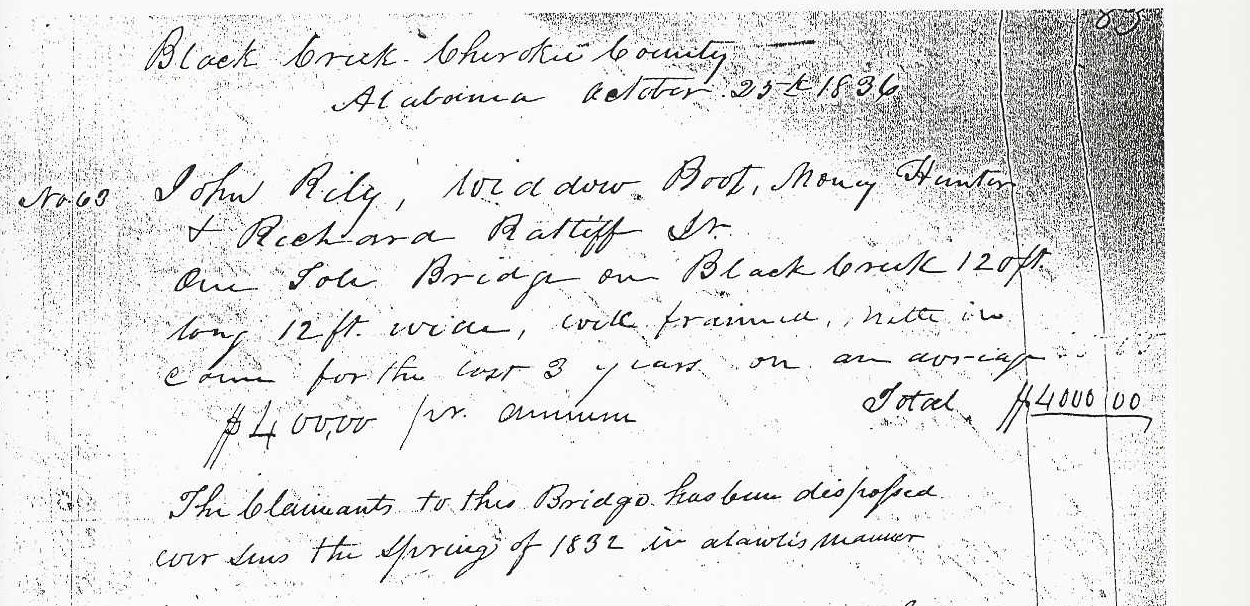 83
Black Creek Cherokee County
Alabama October 25th 1836
No. 63 John Rily, Widdow Boot, Money Hunter
& Richard Ratliff Jr.
One Tole Bridge on Black Creek 120ft.
long 12ft. wide, well framed, nette in
come for the last 3 years on an average
$400.00 pr. annum Total $4000 00
The Claimants to this Bridge has been dispossed
ever sens the Spring of 1832 in alawlis manner